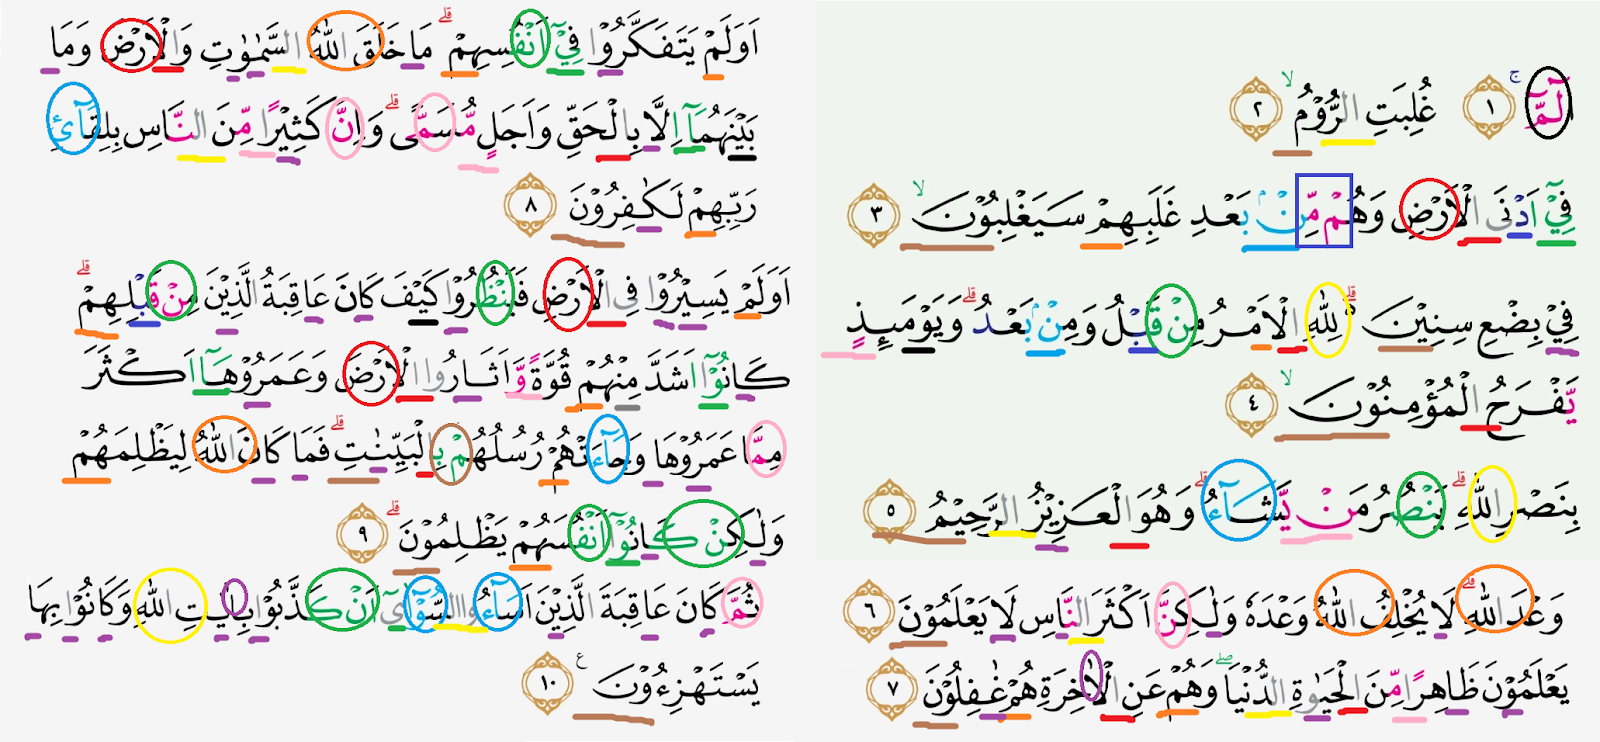 الۤمّۤ ۚ ١ غُلِبَتِ الرُّوْمُۙ ٢
فِيْٓ اَدْنَى الْاَرْضِ وَهُمْ مِّنْۢ بَعْدِ غَلَبِهِمْ سَيَغْلِبُوْنَۙ ٣
فِيْ بِضْعِ سِنِيْنَ ۗ لِلّٰهِ الْاَمْرُ مِنْ قَبْلُ وَمِنْۢ بَعْدُ ۗوَيَوْمَىِٕذٍ
يَّفْرَحُ الْمُؤْمِنُوْنَۙ ٤
بِنَصْرِ اللّٰهِ ۗيَنْصُرُ مَنْ يَّشَاۤءُۗ وَهُوَ الْعَزِيْزُ الرَّحِيْمُ ٥
وَعْدَ اللّٰهِ ۗ لَا يُخْلِفُ اللّٰهُ وَعْدَهٗ وَلٰكِنَّ اَكْثَرَ النَّاسِ لَا يَعْلَمُوْنَ ٦
يَعْلَمُوْنَ ظَاهِرًا مِّنَ الْحَيٰوةِ الدُّنْيَاۖ وَهُمْ عَنِ الْاٰخِرَةِ هُمْ غٰفِلُوْنَ ٧
اَوَلَمْ يَتَفَكَّرُوْا فِيْٓ اَنْفُسِهِمْ ۗ مَا خَلَقَ اللّٰهُ السَّمٰوٰتِ وَالْاَرْضَ وَمَا
بَيْنَهُمَآ اِلَّا بِالْحَقِّ وَاَجَلٍ مُّسَمًّىۗ وَاِنَّ كَثِيْرًا مِّنَ النَّاسِ بِلِقَاۤئِ
رَبِّهِمْ لَكٰفِرُوْنَ ٨
اَوَلَمْ يَسِيْرُوْا فِى الْاَرْضِ فَيَنْظُرُوْا كَيْفَ كَانَ عَاقِبَةُ الَّذِيْنَ مِنْ قَبْلِهِمْۗ
كَانُوْٓا اَشَدَّ مِنْهُمْ قُوَّةً وَّاَثَارُوا الْاَرْضَ وَعَمَرُوْهَآ اَكْثَرَ
مِمَّا عَمَرُوْهَا وَجَاۤءَتْهُمْ رُسُلُهُمْ بِالْبَيِّنٰتِۗ فَمَا كَانَ اللّٰهُ لِيَظْلِمَهُمْ
وَلٰكِنْ كَانُوْٓا اَنْفُسَهُمْ يَظْلِمُوْنَۗ ٩
ثُمَّ كَانَ عَاقِبَةَ الَّذِيْنَ اَسَاۤءُوا السُّوْۤاٰىٓ اَنْ كَذَّبُوْا بِاٰيٰتِ اللّٰهِ وَكَانُوْا بِهَا
يَسْتَهْزِءُوْنَ ࣖ ١٠